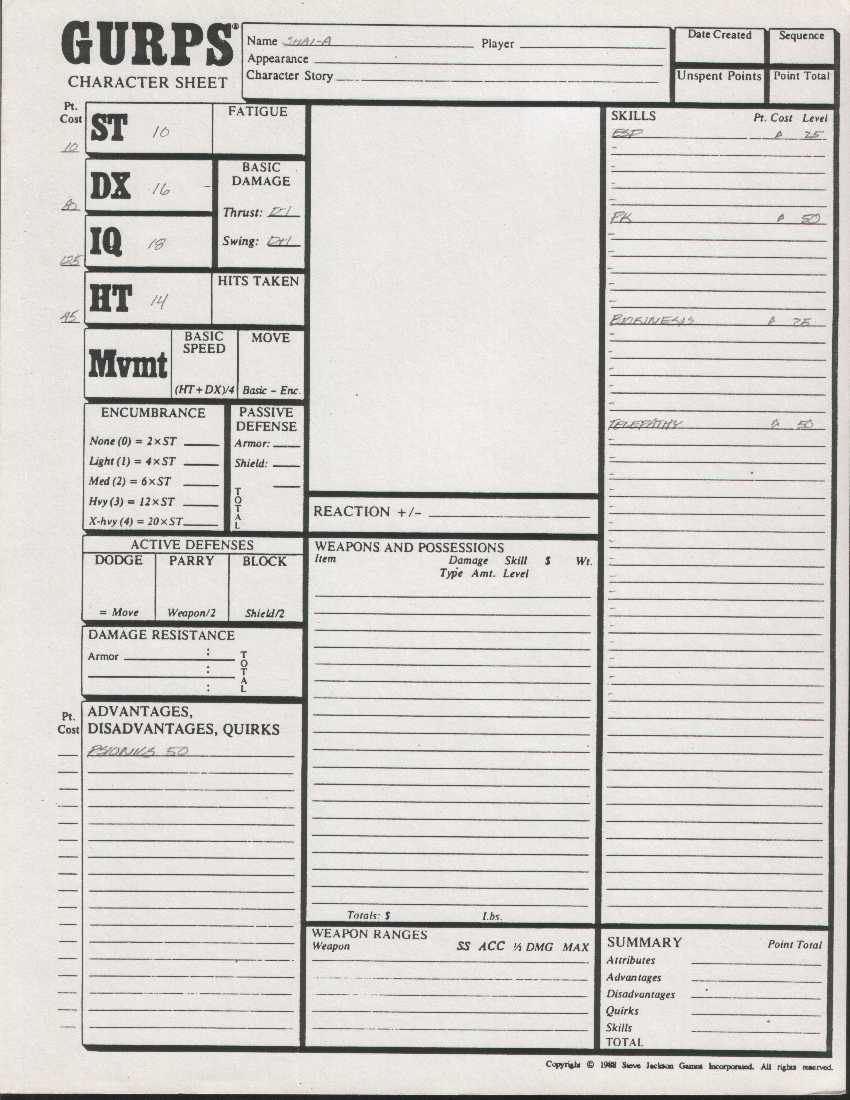 GURPS®
CHARACTER SHEET
Name SHAI-A Player
Appearance
Character Story
Date Created
Sequence
Unspent Points
Point Total
Pt. Cost
10 ST 10
FATIGUE
80 DX 16
BASIC DAMAGE
Thrust:
Swing:
125 IQ 18
45 HT 14
HITS TAKEN
Mvmt
BASIC SPEED
(HT+DX)/4
MOVE
Basic – Enc.
ENCUMBRANCE
None (0) = 2×ST
Light (1) = 4×ST
Med (2) = 6×ST
Hvy (3) = 12×ST
X-hvy (4) = 20×ST
PASSIVE DEFENSE
Armor:
Shield:
TOTAL
ACTIVE DEFENSES
DODGE PARRY BLOCK
= Move Weapon/2 Shield/2
DAMAGE RESISTANCE
Armor : 
:
:
TOTAL
Pt. Cost
ADVANTAGES,
DISADVANTAGES, QUIRKS
PSIONICS 50
REACTION +/–
WEAPONS AND POSSESSIONS
Item Damage Skill $ Wt.
Type Amt. Level
Totals: $ Lbs.
WEAPON RANGES
Weapon SS ACC ½ DMG MAX
SKILLS Pt. Cost Level
ESP 25
PK 50
25
TELEPATHY 50
SUMMARY Point Total
Attributes
Advantages
Disadvantages
Quirks
Skills
TOTAL
Copyright © 1988 Steve Jackson Games Incorporated. All rights reserved.